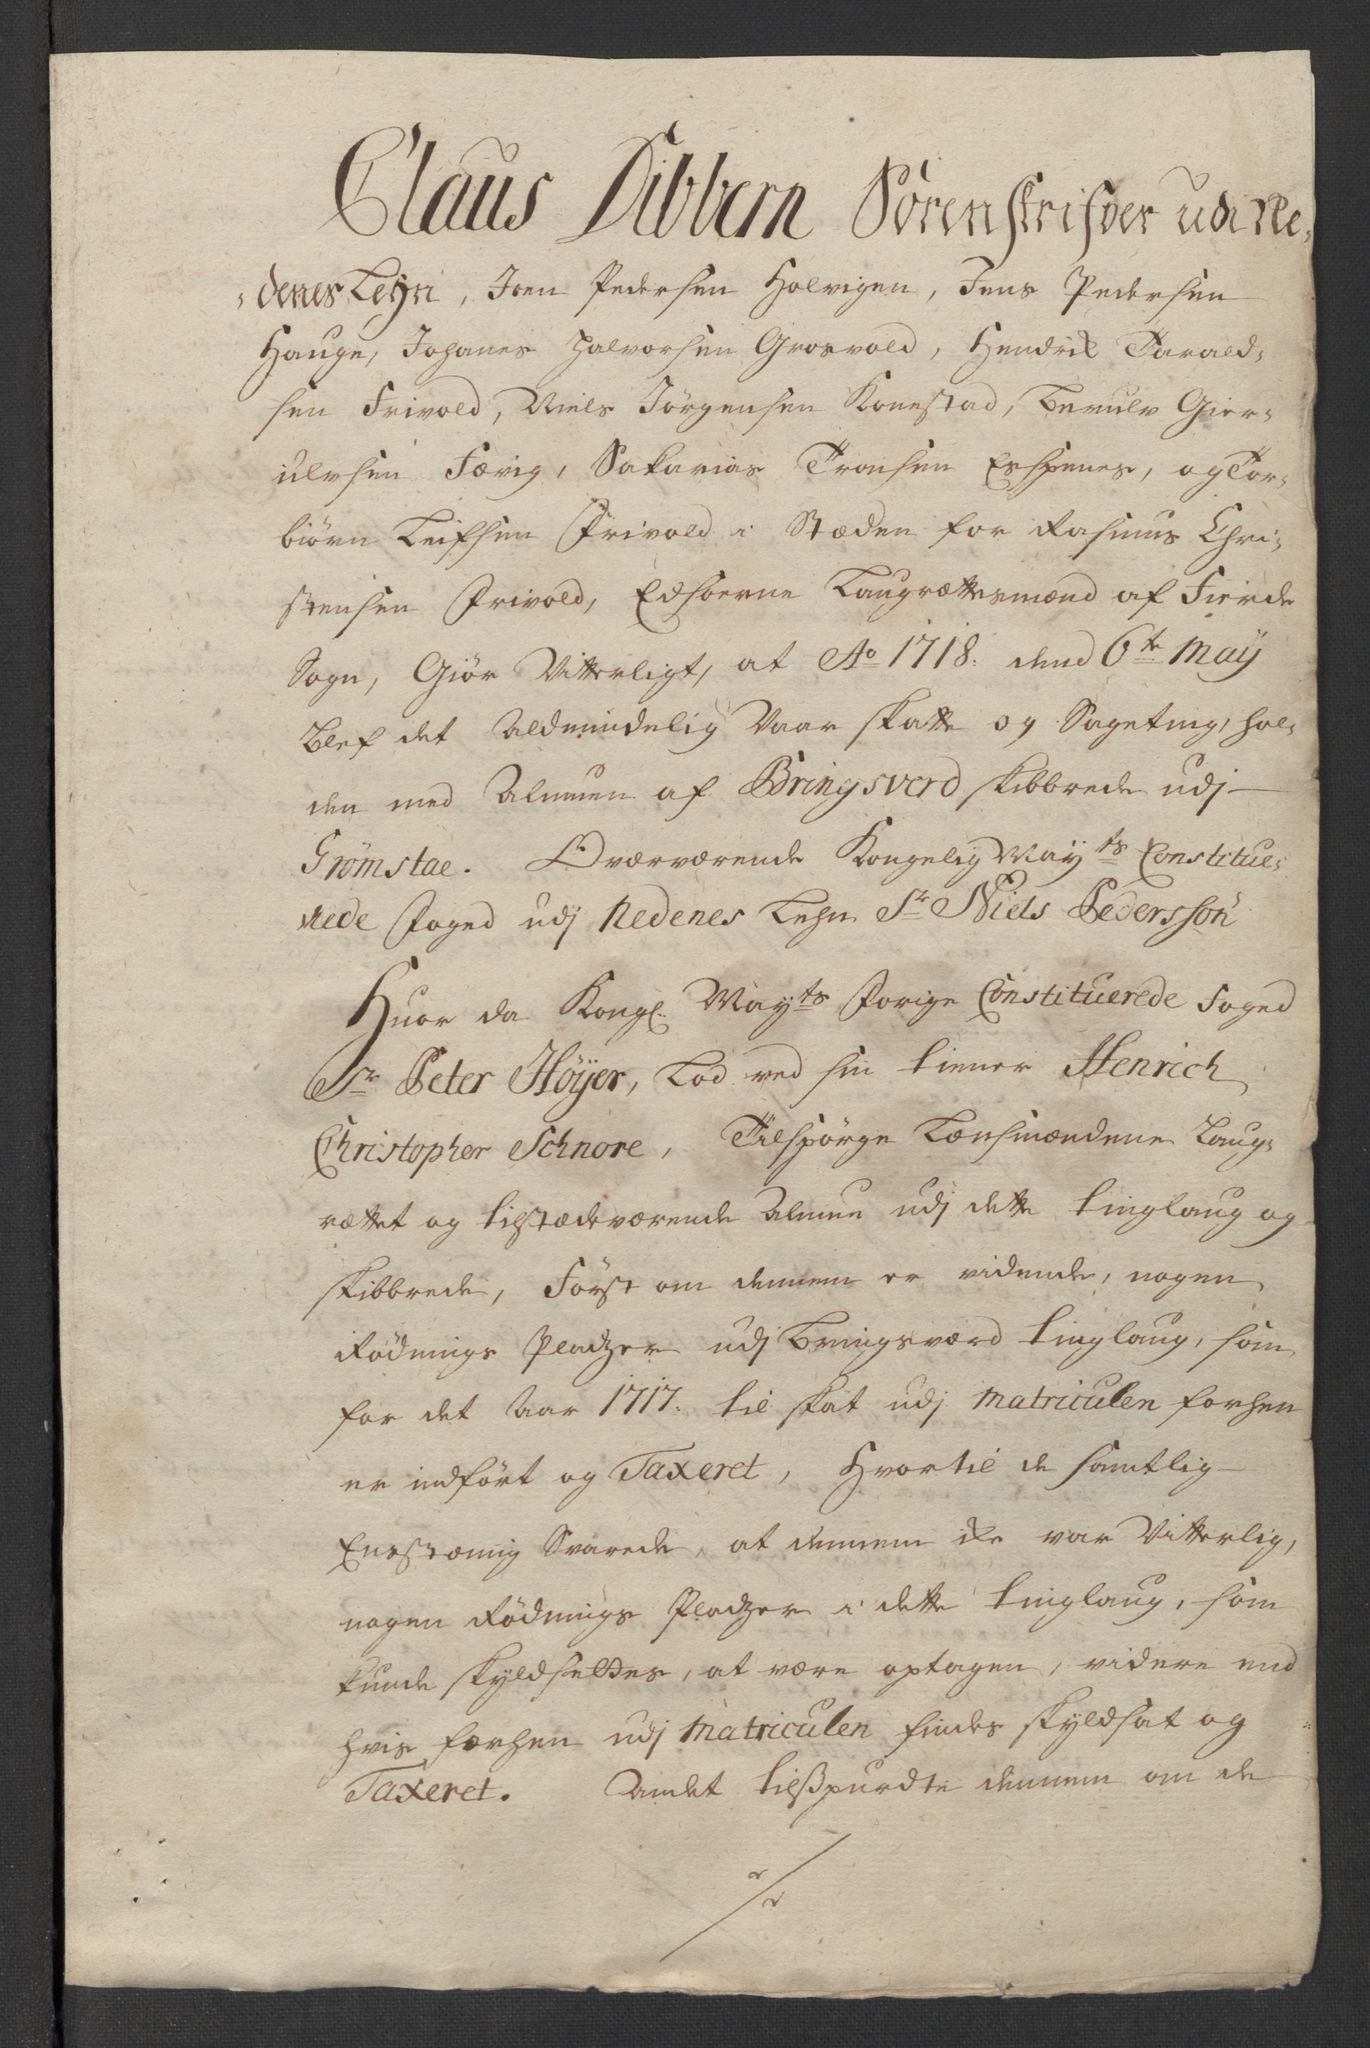 Claus Dibbern Sorenskrifver udi Ne,
,denes Lehn, Joen Pedersen Holvigen, Jens Pedersen
Hauge, Johanes Halvorsen Grosvold, Hendrik Tarald,
sen Frivold, Niels Jörgensen Konestad, Berulv Gier,
ulvsen Færvig, Sakarias Tronsen Espenes, og Tor,
biörn Leifsen Frivold i Stæden for Rasmus Chri,
stensen Frivold, Edsorne Laugrættesmænd af Fierde
Sogn, Giör Vitterligt, at Ao 1718. dend 6te May
blef det Aldmindelig Vaar skatte og Sageting, hol,
den med Almuen af Bringsverd skibbrede udj
Grömstae. Overværende Kongelig Mayts Constitue,
rede Foged udj Nedenes Lehn Sr Niels Pedersson
Huor da Kongl. Mayts Forige Constituerede Foged
Sr Peter Höyer, Lod ved sin tiener Henrich
Christopher Schnore, Tilspörge Lænsmændene Laug,
rættet og tilstædeværende Almue udj dette tinglaug og
skibbrede, Först om dennem er vidende, nogen
Rödnings Pladzer udj Bringsværd tinglaug, som
for det Aar 1717. til skat udj Matriculen forhen
er indfört og Taxeret, Hvortil de samtlig
Enstæmig Svarede, at dennem icke var Vitterlig,
nogen Rödnings Pladzer i dette tinglaug, som
kunde skyldsettes, at være optagen, videre end
hvis forhen udj Matriculen findes skyldsat og
Taxeret. Andet tilsspurdte dennem om de